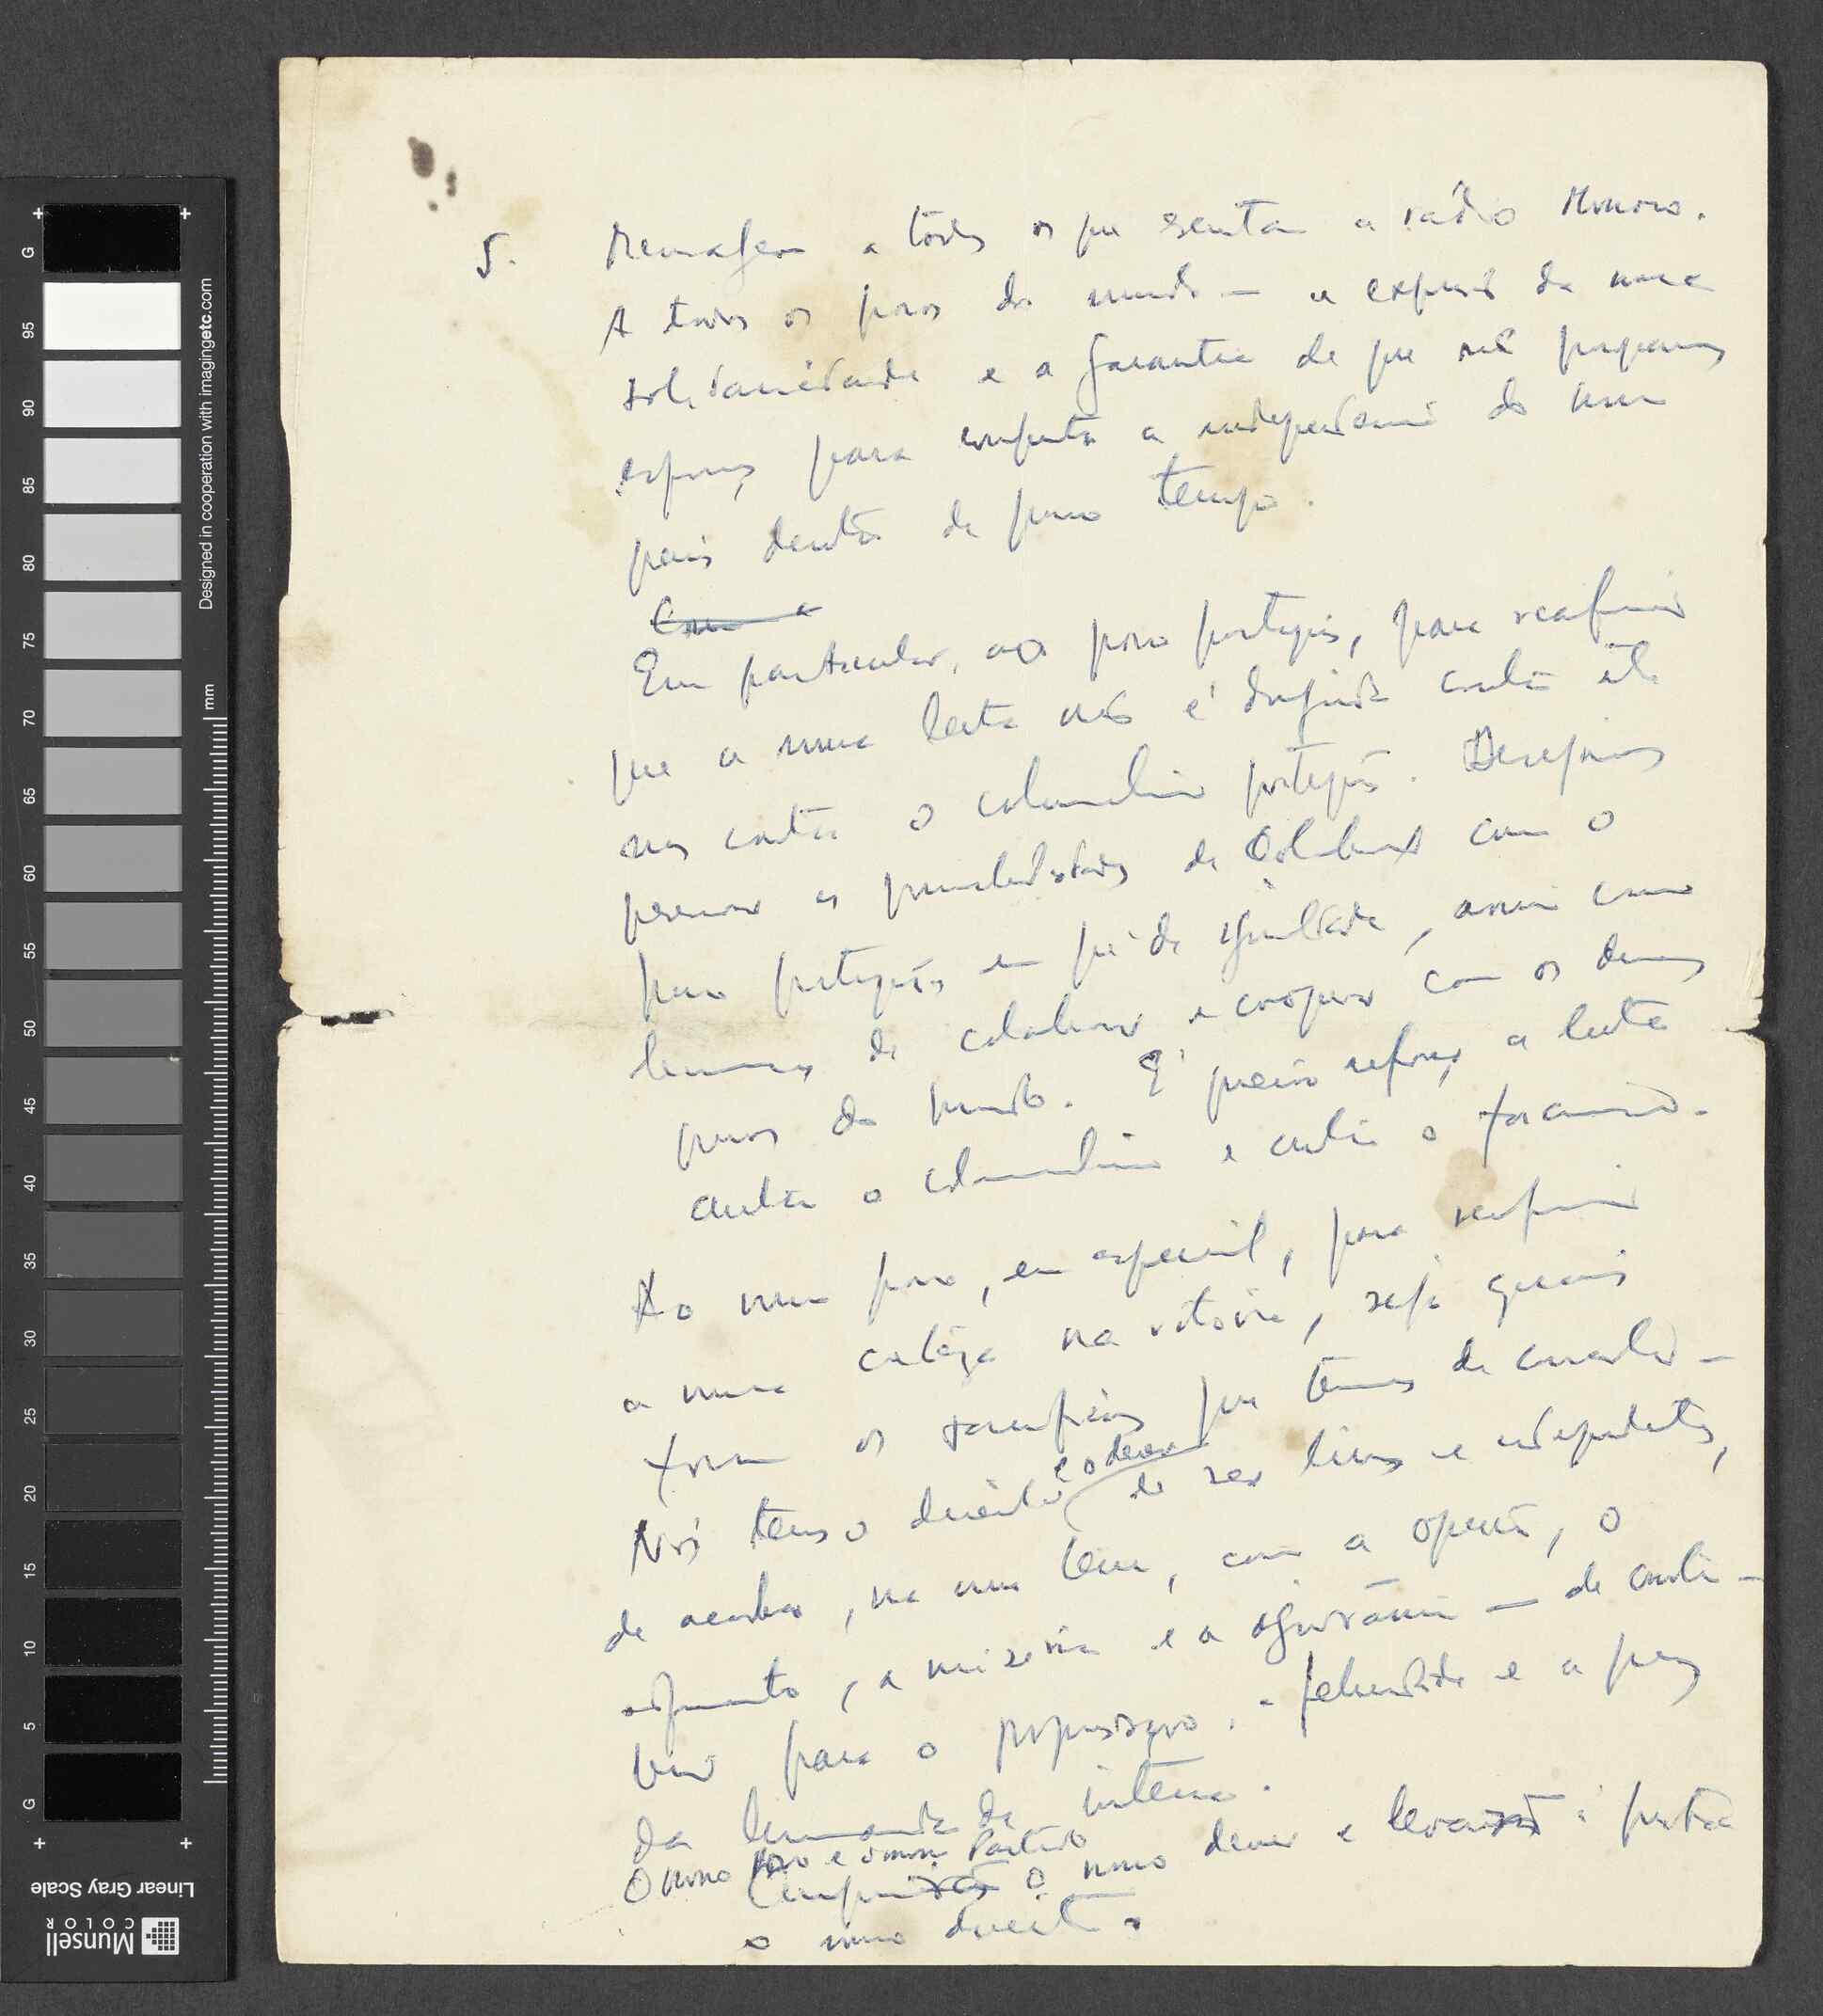 5. Mensagem a todos os que escutam a rádio Moscovo.
A todos os povos do mundo — a expressão da nossa
solidariedade e a garantia de que não pouparemos
esforços para conquistar a independência do nosso
país dentro de pouco tempo.
Em particular, ao povo português, para reafirmar
que a nossa luta não é dirigida contra êle
mas contra o colonialismo português. Desejamos
preservar as possibilidades de colaboração com o
povo português em pé de igualdade, assim como
de colaborar e cooperar com os demais
povos do mundo. É preciso reforçar a luta
contra o colonialismo e contra o fascismo.
Ao nosso povo, em especial, para reafirmar
a nossa certeza na vitória, seja quais
forem os sacrifícios que temos de consentir —
Nós temos o direito e o dever de ser livres e independentes,
de acabar, na nossa terra, com a opressão, o
sofrimento, a miséria e a ignorância — de contri-
buir para o progresso, a felicidade e a paz
da humanidade inteira.
O nosso Povo e o nosso Partido
o nosso dever e à prática
o nosso direito.
Designed in cooperation with imagingetc.com
mm
G 95 90 85 80 75 70 65 60 55 50 45 40 35 30 25 20 15 10 5 G
Linear Gray Scale
Munsell
COLOR